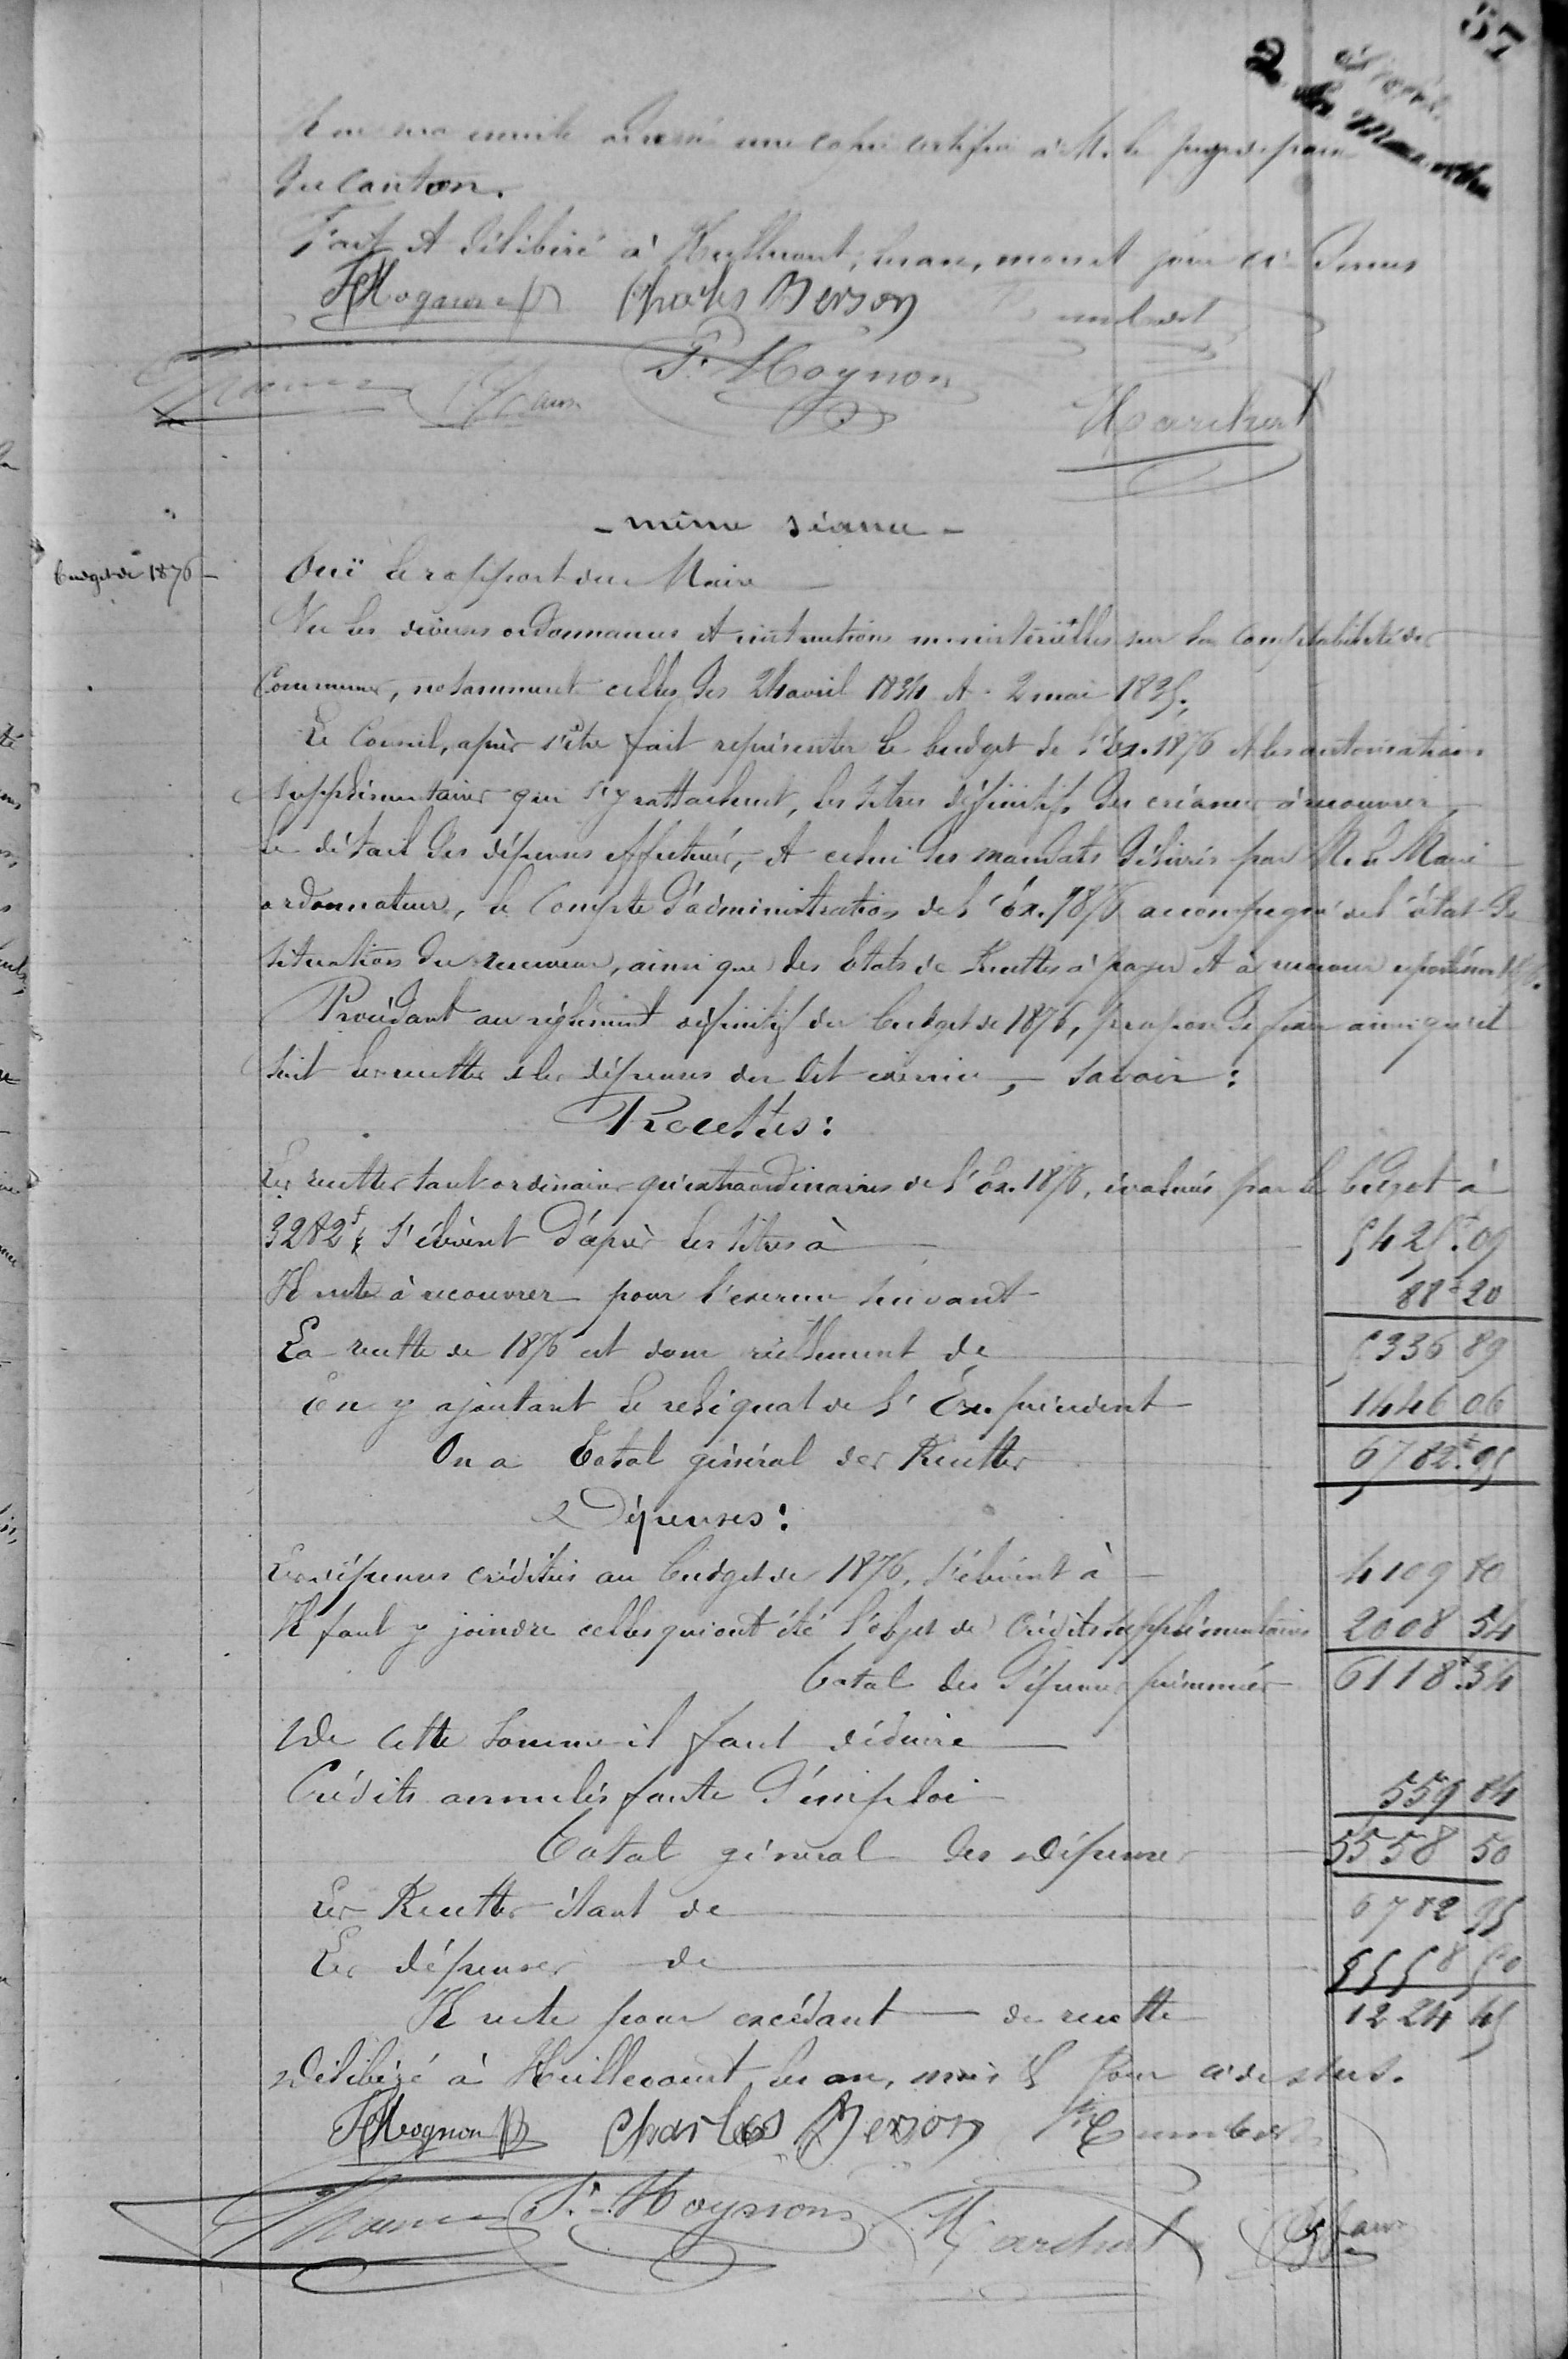 57
2
une copie certifiée à M. le juge de paix
du canton.
Fait et délibéré à Huilliécourt, les an, mois et jour ci-dessus
Charles Berson
P. Mognon
Marchal
- même séance -
budget de 1876 -
Ouï le rapport du Maire
Vu les diverses ordonnances et instructions ministérielles sur la comptabilité des
Communes, notamment celles des 24 avril 1834 et 2 mai 1835;
Le Conseil, après s'être fait représenter le budget de l'Ex. 1876 et les autorisations
supplémentaires qui s'y rattachent, les titres définitifs des créances à recouvrer,
le détail des dépenses effectuées, et celui des mandats délivrés par M. le Maire
ordonnateur, le Compte d'administration de l'Ex. 1876 accompagné de l'état de
situation du receveur, ainsi que des Etats de Recettes à payer et à recouvrer
Procédant au règlement définitif du budget de 1876, propose de fixer ainsi qu'il
suit les recettes et les dépenses du dit exercice, - savoir:
Recettes:
Les recettes tant ordinaires qu'extraordinaires de l'Ex. 1876, évaluées par le budget à
3282f s'élèvent d'après les titres à 5425f.09
Il reste à recouvrer pour l'exercice suivant 88f 20
La recette de 1876 est donc réellement de 5336 89
En y ajoutant le reliquat de l'Ex. précédent 1446 06
On a Total général des Recettes 6782f.95
Dépenses:
Les dépenses créditées au budget de 1876, s'élèvent à 4109 80
Il faut y joindre celles qui ont été l'objet de Crédits supplémentaires 2008 54
Total des dépenses présumées 6118f.34
De cette somme il faut déduire
Crédits annulés faute d'emploi 559 84
Total général des Dépenses 5558 50
Les Recettes étant de 6782 95
Les dépenses de 5558 50
Il reste pour excédant de recette 1224 45
Délibéré à Huilliécourt, les an, mois et jour ci-dessus.
Mognon Charles Berson
P. Mognon Marchal